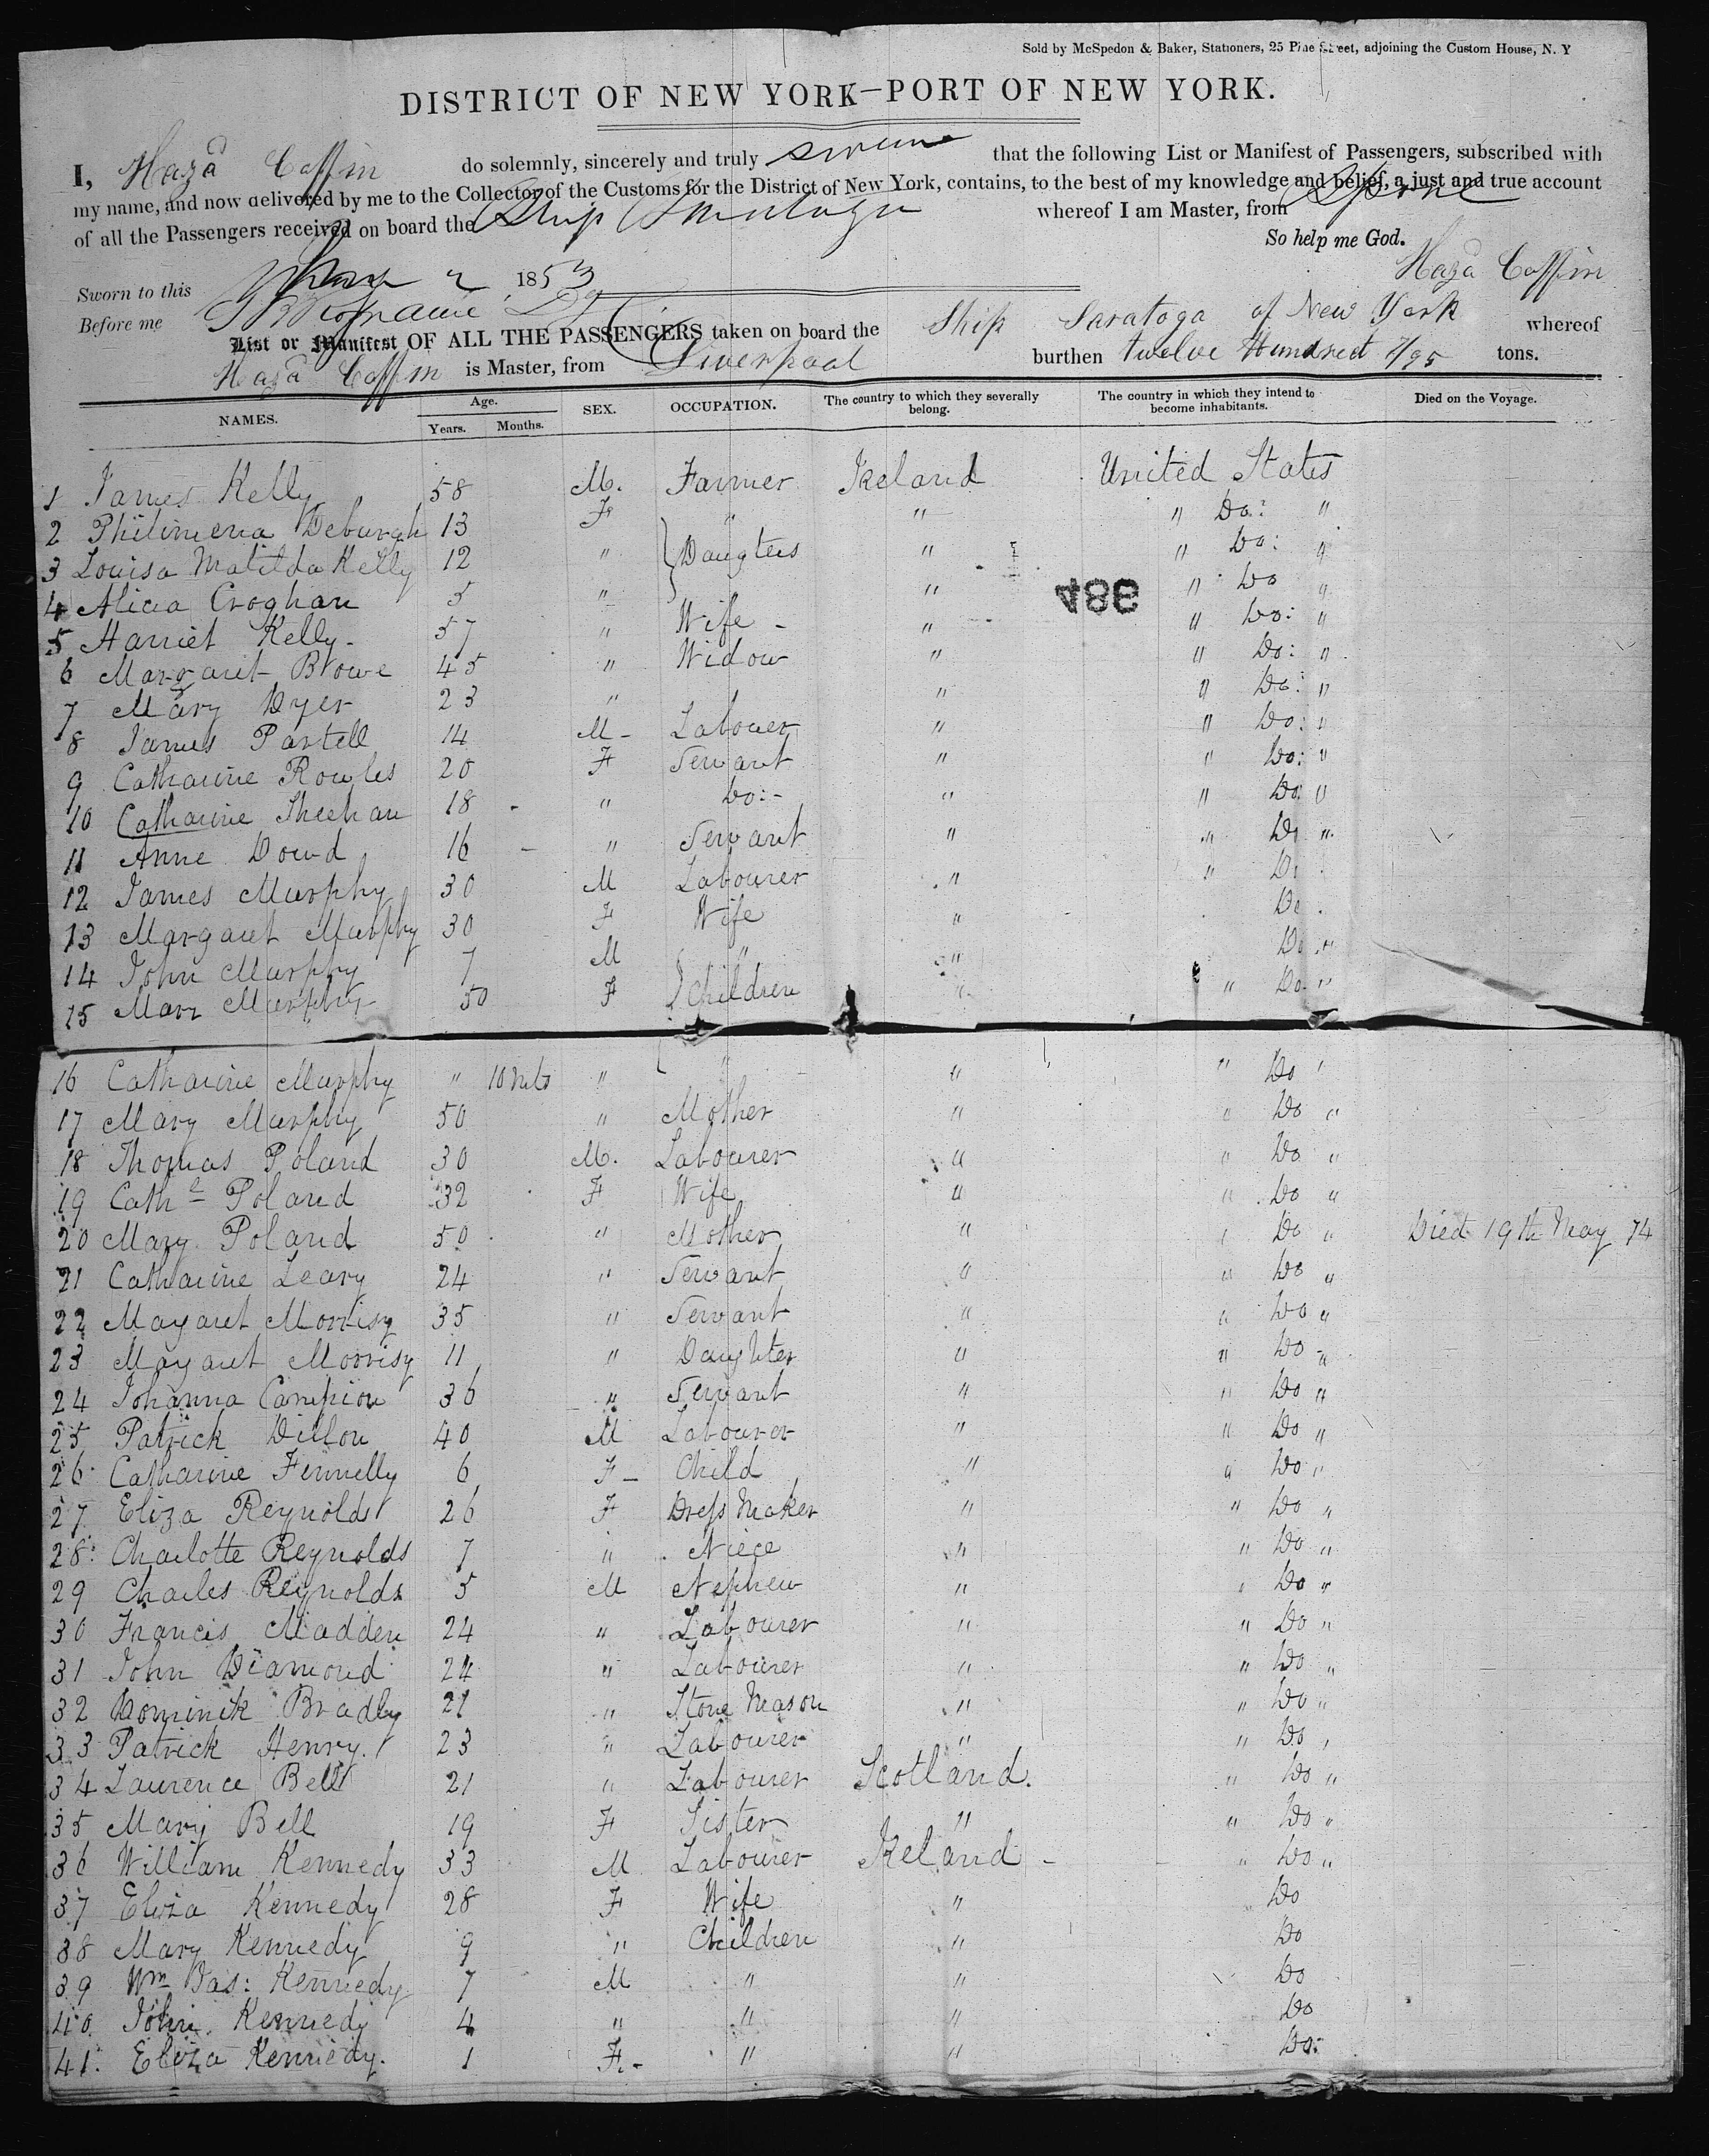 Sold by McSpedon & Baker, Stationers, 25 Pine Street, adjoining the Custom House, N. Y
DISTRICT OF NEW YORK—PORT OF NEW YORK.
I, Haza Coffin do solemnly, sincerely and truly swear that the following List or Manifest of Passengers, subscribed with
my name, and now delivered by me to the Collector of the Customs for the District of New York, contains, to the best of my knowledge and belief, a just and true account
of all the Passengers received on board the Ship whereof I am Master, from
So help me God.
Haza Coffin
Sworn to this 2 1853
Before me
List or Manifest OF ALL THE PASSENGERS taken on board the Ship Saratoga of New York whereof
Haza Coffin is Master, from Liverpool burthen twelve Hundred 7/95 tons.
NAMES. Age. Years. Months. SEX. OCCUPATION. The country to which they severally belong. The country in which they intend to become inhabitants. Died on the Voyage.
1 James Kelly 58 M. Farmer Ireland United States
2 Philimena Deburgh 13 F " " " Do: "
3 Louisa Matilda Kelly 12 " } Daugters " " Do: "
4 Alicia Croghan 5 " " " Do "
486
5 Harriet Kelly- 57 " Wife - " " Do: "
6 Margaret Browe 45 " Widow " " Do: "
7 Mary Dyer 23 " " " Do: "
8 James Partell 14 M - Labouer " " Do: "
9 Catharine Rowles 20 F Servant " " Do: "
10 Catharine Sheehan 18 - " Do:- " " Do: "
11 Anne Dowd 16 - " Servant " " Do "
12 James Murphy 30 M Labourer " " Do
13 Margaret Murphy 30 F Wife " Do.
14 John Murphy 7 M " " Do "
15 Mary Murphy 50 F { Children " " Do "
16 Catharine Murphy " 10 mts " " " " Do "
17 Mary Murphy 50 " Mother " " Do "
18 Thomas Poland 30 M. Labourer " " Do "
19 Cathe Poland 32 F Wife " " Do "
20 Mary Poland 50 " Mother " " Do " Died 19th May 74
21 Catharine Leary 24 " Servant " " Do "
22 Magaret Morrisy 35 " Servant " " Do "
23 Magaret Morrisy 11 " Daughter " " Do "
24 Johanna Campion 36 " Servant " " Do "
25 Patrick Dillon 40 M Labourer " " Do "
26 Catharine Fennelly 6 F - Child " " Do "
27 Eliza Reynolds 26 F Dress Maker " " Do "
28 Charlotte Reynolds 7 " Niece " " Do "
29 Charles Reynolds 5 M Nephew " " Do "
30 Francis Madden 24 " Labourer " " Do "
31 John Diamond 24 " Labourer " " Do "
32 Dominick Bradley 21 " Stone Mason " " Do "
33 Patrick Henry 23 " Labourer " " Do "
34 Laurence Bell 21 " Labourer Scotland. " Do "
35 Mary Bell 19 F Sister " " Do "
36 William Kennedy 33 M Labourer Ireland - " Do "
37 Eliza Kennedy 28 F Wife " Do
38 Mary Kennedy 9 " Children " Do
39 Wm Jas: Kennedy 7 M " " Do
40 John Kennedy 4 " " " Do
41. Eliza Kennedy. 1 F.- " " Do: